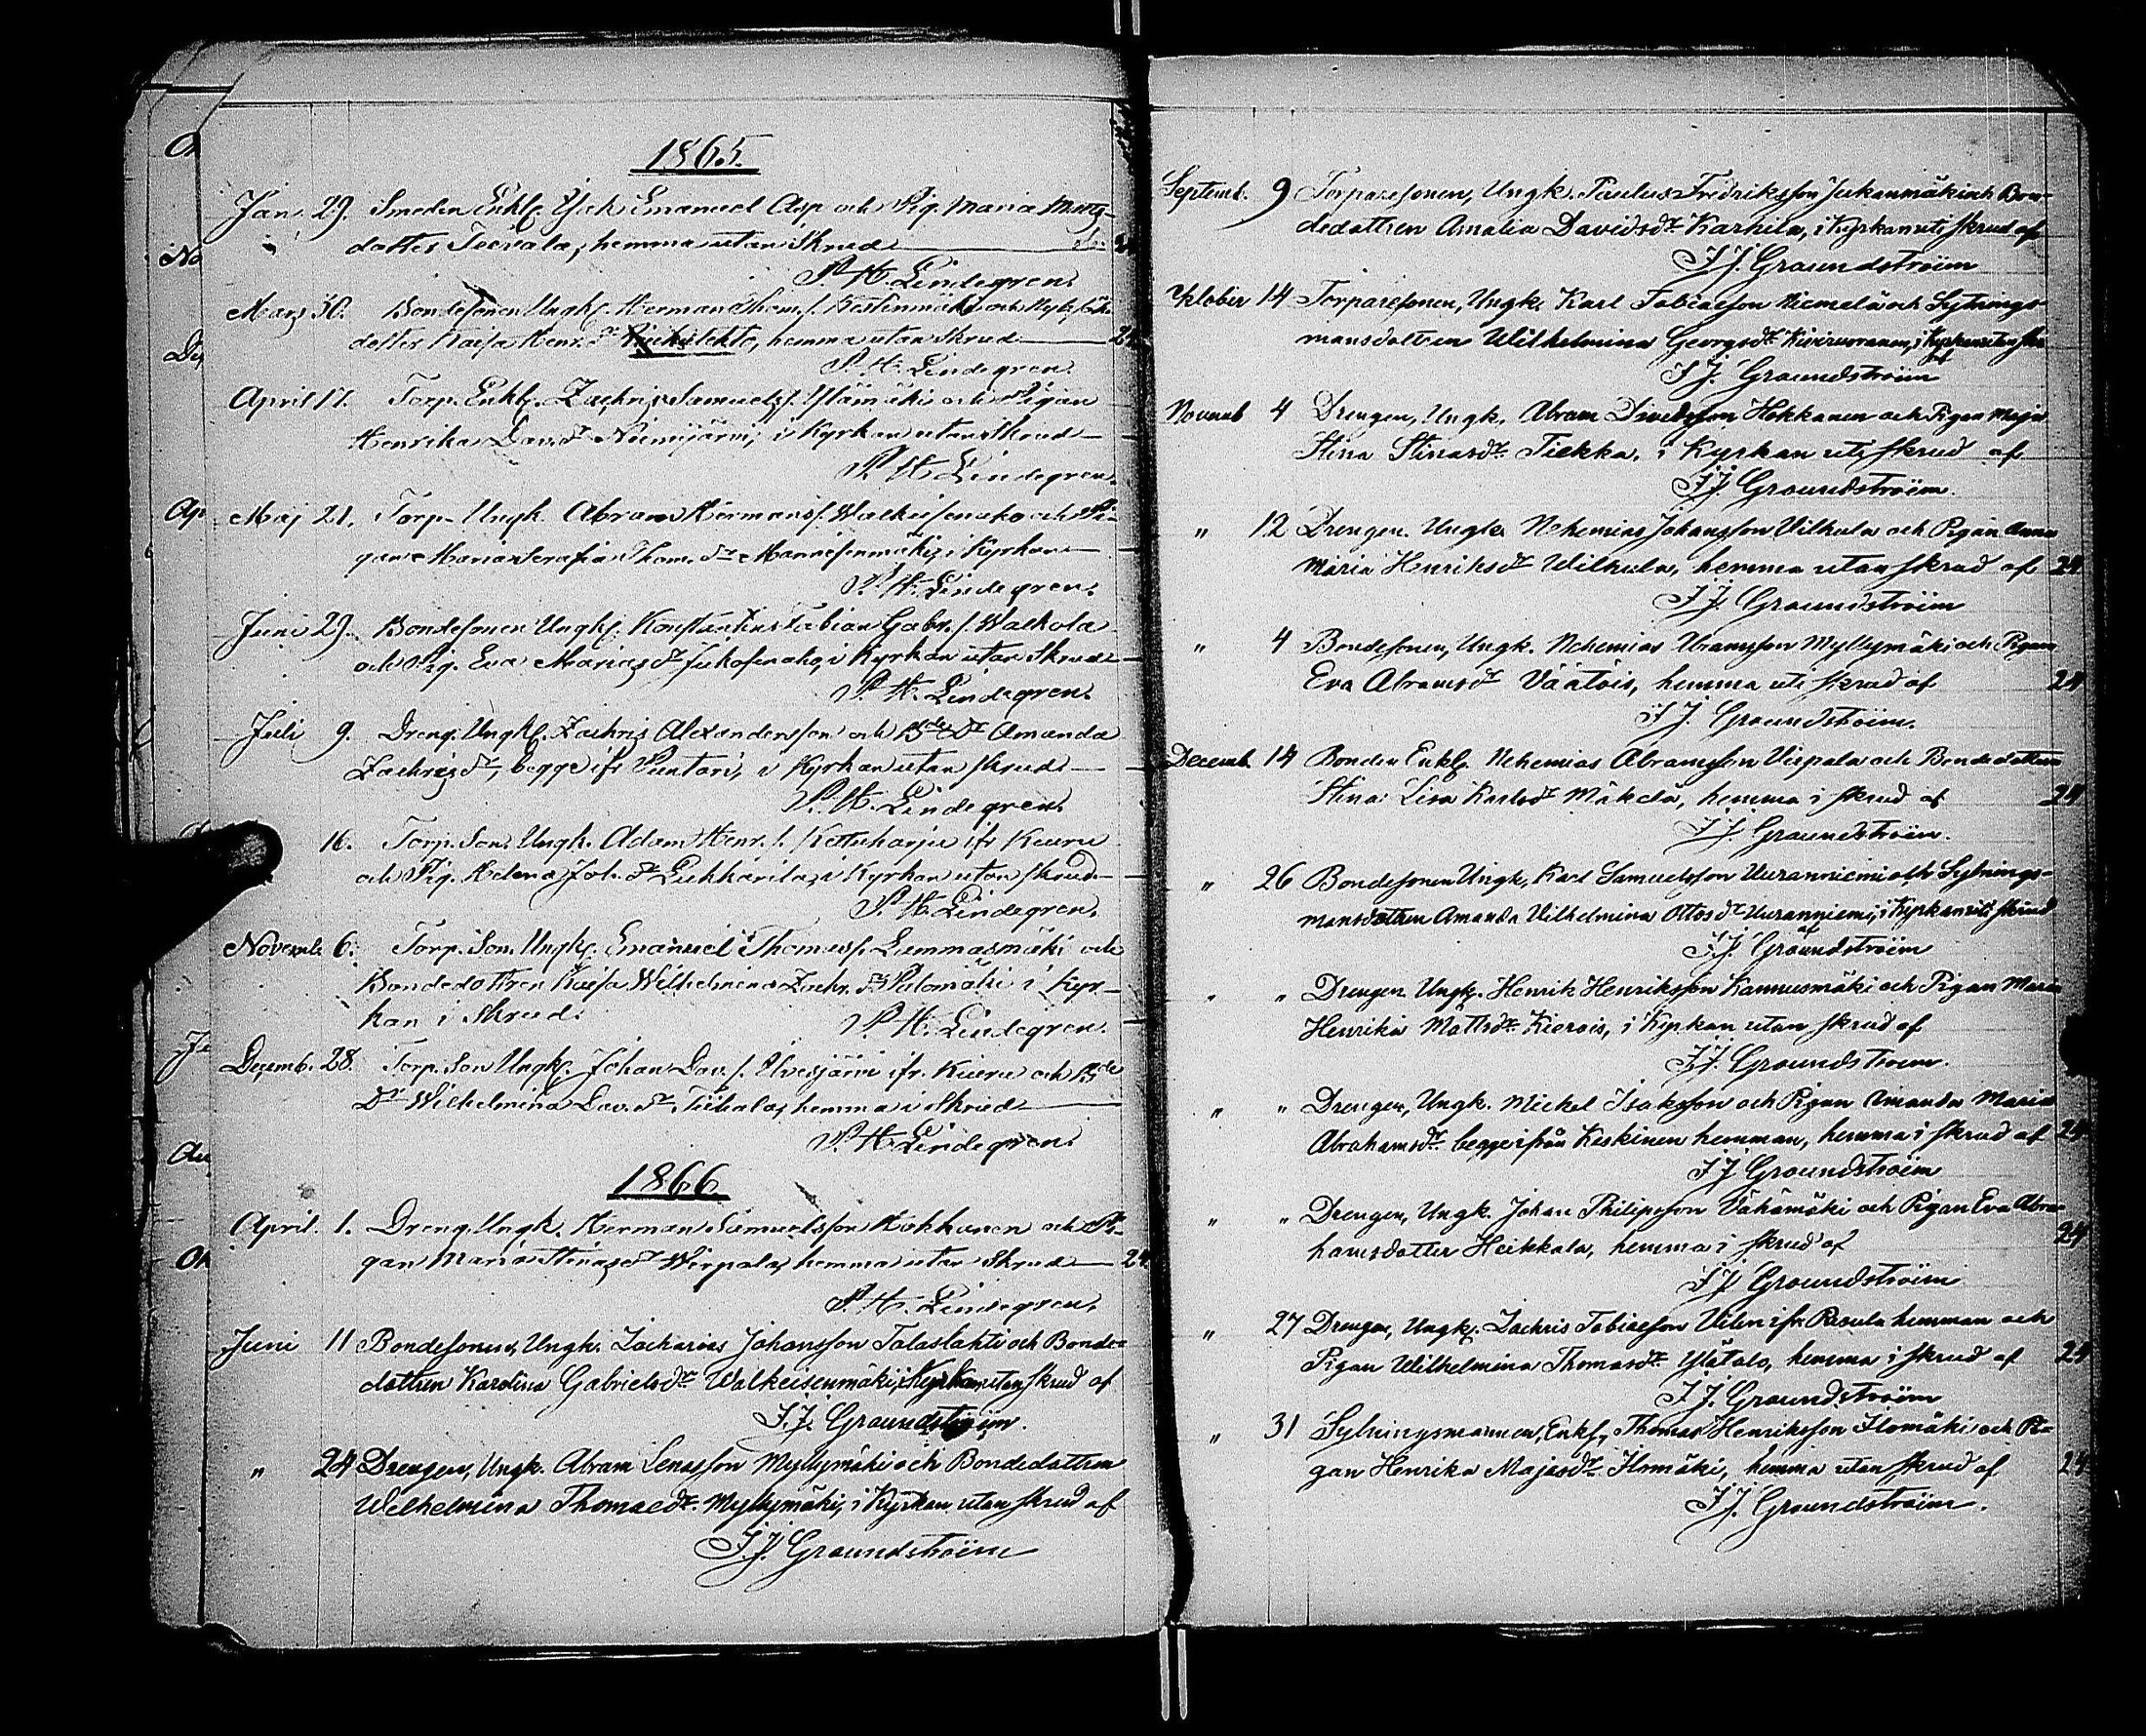 1865.
Jan. 29. Smeden Enkl. Isak Emanuel Asp och Pig. Maria
dotter hemma utan Skrud
P. H. Lindegren.
Mars 30. Bondesonen Ungk. Herman Thom. s. och
dotter Kaisa Henr. dr hemma utan Skrud 24
P. H. Lindegren.
April 17. Torp. Enkl. Zachris Samuels s. Ylämäki och Pigan
Henrika Dav. dr Niemijärvi, i Kyrkan utan Skrud
P. H. Lindegren.
Maj 21. Torp. Ungk. Abram Hermans s. och Pi-
gan Maria Serafia Thom. dr i Kyrkan
P. H. Lindegren.
Juni 29. Bondesonen Ungk. Konstantin Fabian Gabr. s. Walkola
och Pig. Eva Maria dr i Kyrkan utan Skrud
P. H. Lindegren.
Juli 9. Dreng. Ungk. Zachris Alexandersson och Bde Dr Amanda
Zachris dr, begge ifr Puntari, i Kyrkan utan skrud
P. H. Lindegren.
16. Torp. Son. Ungk. Adam Henr. s. Kettuharju ifr Kueru
och Pig. Helena Joh. dr i Kyrkan utan skrud
P. H. Lindegren.
Novemb. 6. Torp. Son. Ungk. Emanuel Thomas s. Lammasmäki och
Bondedottren Kaisa Wilhelmina Zachr. dr Palomäki i Kyr-
kan i Skrud.
P. H. Lindegren.
Decemb. 28. Torp. Son Ungk. Johan Dav. s. Ulvesjärvi ifr. Kueru och Bde
Dr Wilhelmina Dav. dr hemma i Skrud
P. H. Lindegren.
1866.
April. 1. Dreng. Ungk. Herman Samuelsson Hokkanen och Pi-
gan Maria Stinas dr Wirpala, hemma utan Skrud 24
P. H. Lindegren.
Juni 11 Bondesonen, Ungk. Zacharias Johansson Talaslahti och Bonde-
dottren Karolina Gabrielsdr Walkeisenmäki, i Kyrkan utan skrud af
F. J. Groundström.
" 24 Drengen, Ungk. Abram Lenasson Myllymäki och Bondedottren
Wilhelmina Thomasdr Myllymäki, i Kyrkan utan skrud af
F. J. Groundström
Septemb. 9 Torparesonen, Ungk. Paulus Fredriksson Jukanmäki och Bon-
dedottren Amalia Davidsdr Karhila, i Kyrkan uti skrud af
F. J. Groundström
October 14 Torparesonen, Ungk. Karl Tobiasson Niemelä och Sytnings-
mansdottren Wilhelmina Georgsdr Kivivuoranen, i Kyrkan utan skr
af
F. J. Groundström
Novemb 4 Drengen, Ungk. Abram Davidsson Hokkanen och Pigan Maja
Stina Stinasdr Tiekka, i Kyrkan uti skrud af
F. J. Groundström.
" 12 Drengen. Ungk. Nehemias Johansson Vilhula och Pigan Anna
Maria Henriksdr Wilhula, hemma utan skrud af 24
F. J. Groundström
" 4 Bondesonen, Ungk. Nehemias Abramsson Myllymäki och Pigan
Eva Abramsdr Väätäis, hemma uti skrud af 24
F. J. Groundström.
Decemb. 14 Bonden Enkl. Nehemias Abramsson Virpala och Bondedottren
Stina Lisa Karlsdr Mäkelä, hemma i skrud af 24
F. J. Groundström.
" 26 Bondesonen Ungk. Karl Samuelsson Vuoranniemi och Sytnings-
mansdottren Amanda Vilhelmina Ottosdr Vuoranniemi, i Kyrkan uti skrud
af
F. J. Groundström
" " Drengen Ungk. Henrik Henriksson Kannusmäki och Pigan Maria
Henrika Mattsdr Kierois, i Kyrkan utan skrud af
F. J. Groundström.
" " Drengen, Ungk. Mickel Isaksson och Pigan Amanda Maria
Abrahamsdr begge ifrån Keskinen hemman, hemma i skrud af 24
F. J. Groundström
" " Drengen, Ungk. Johan Philipsson Vähämäki och Pigan Eva Abra-
hamsdotter Heikkala, hemma i skrud af 24
F. J. Groundström
" 27 Drengen, Ungk. Zachris Tobiasson Vilen ifr. Pasula hemman och
Pigan Wilhelmina Thomasdr Ylätalo, hemma i skrud af 24
F. J. Groundström
" 31 Sytningsmannen, Enkl. Thomas Henriksson Ilomäki och Pi-
gan Henrika Majasdr Ilomäki, hemma utan skrud af 24
F. J. Groundström.